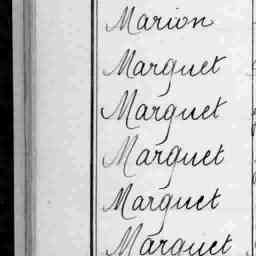 Marion
Marguet
Marguet
Marguet
Marguet
Marguet